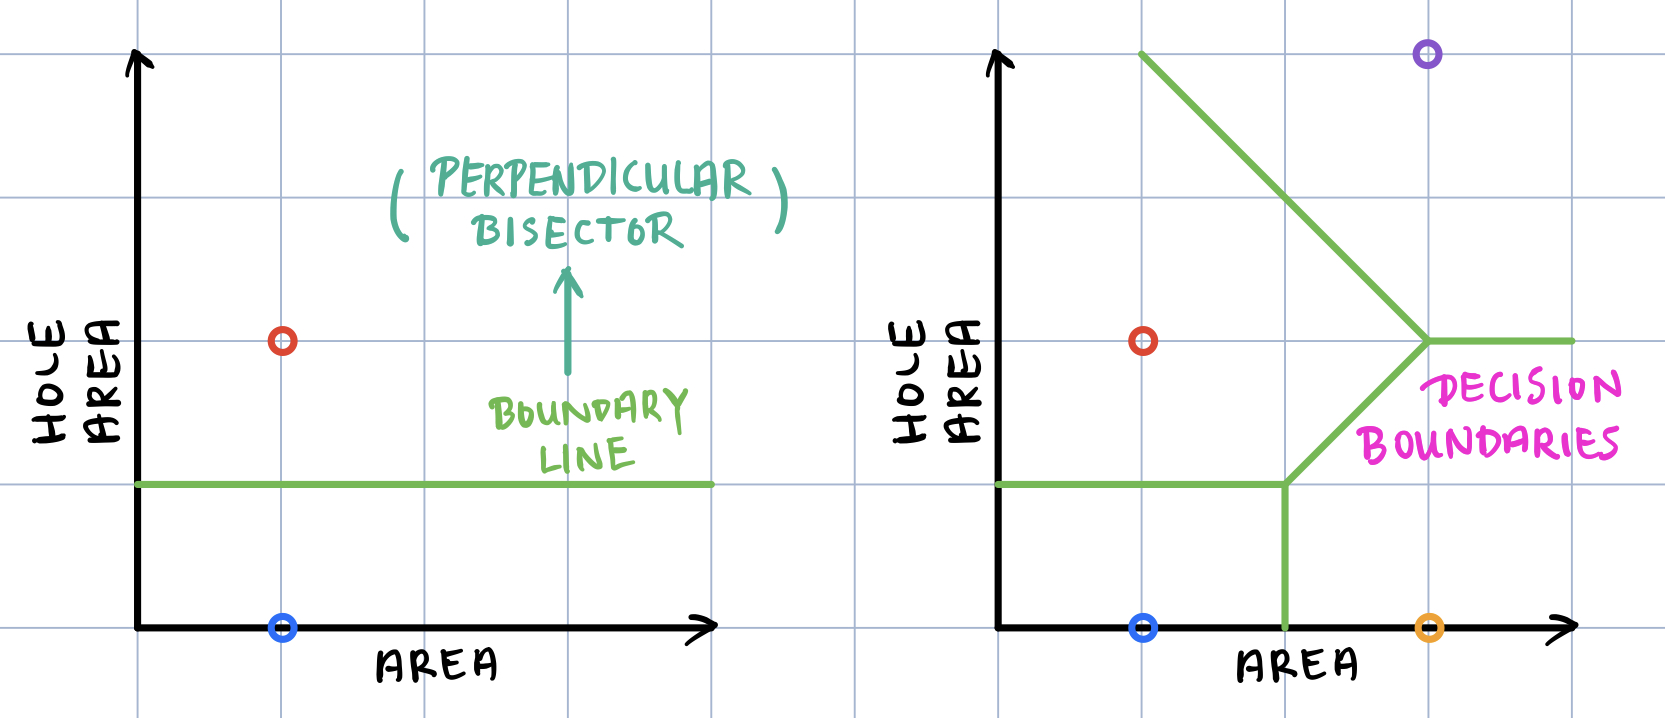 HOLE
AREA
( PERPENDICULAR
BISECTOR )
BOUNDARY
LINE
AREA
HOLE
AREA
DECISION
BOUNDARIES
AREA